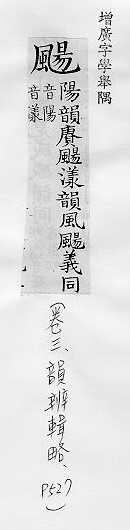 增廣字學舉隅
颺
陽韻賡颺漾韻風颺義同
音陽
音漾
(卷三、韻辨輯略、P527)